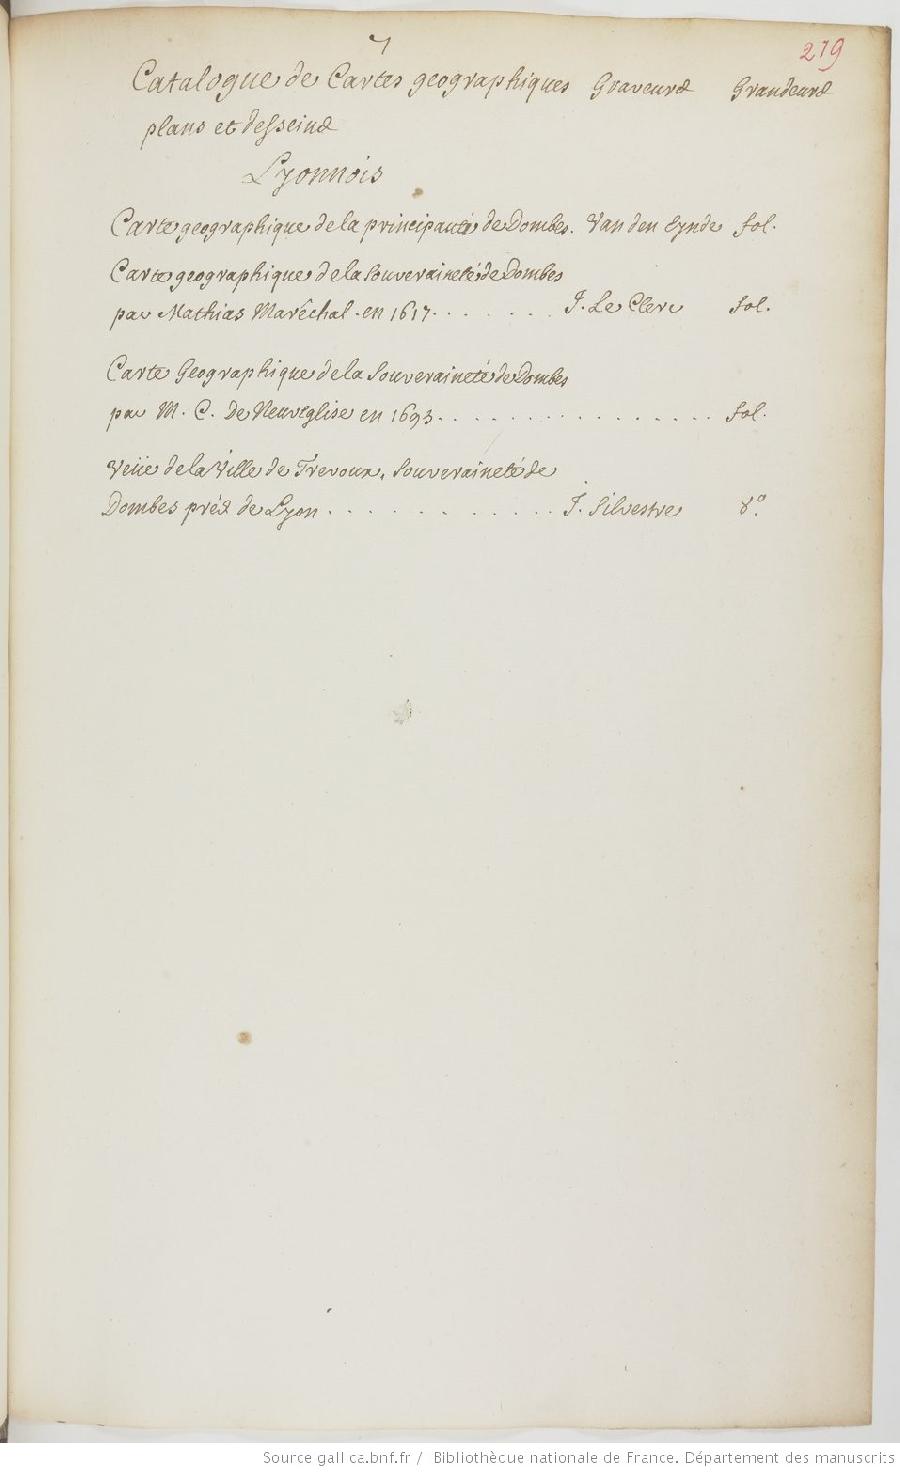 7
219
Catalogue de Cartes geographiques Graveurs Grandeurs
plans et desseins
Lyonnois
Carte geographique de la principauté de Dombes. Van den Eynde fol.
Carte geographique de la Souveraineté de Dombes
par Mathias Maréchal. en 1617. . . . . . . . J. Le Clerc fol.
Carte Geographique de la Souveraineté de Dombes
par M. C. De Neuveglise en 1693. . . . . . . . . . . . . . . . . fol.
Veüe de la Ville de Trevoux, Souveraineté de
Dombes prés de Lyon . . . . . . . . . . . . J. Silvestre 8º.
Source gallica.bnf.fr / Bibliothèque nationale de France. Département des manuscrits